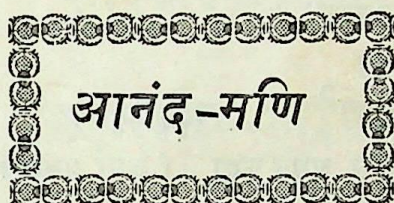 आनंद-मणि